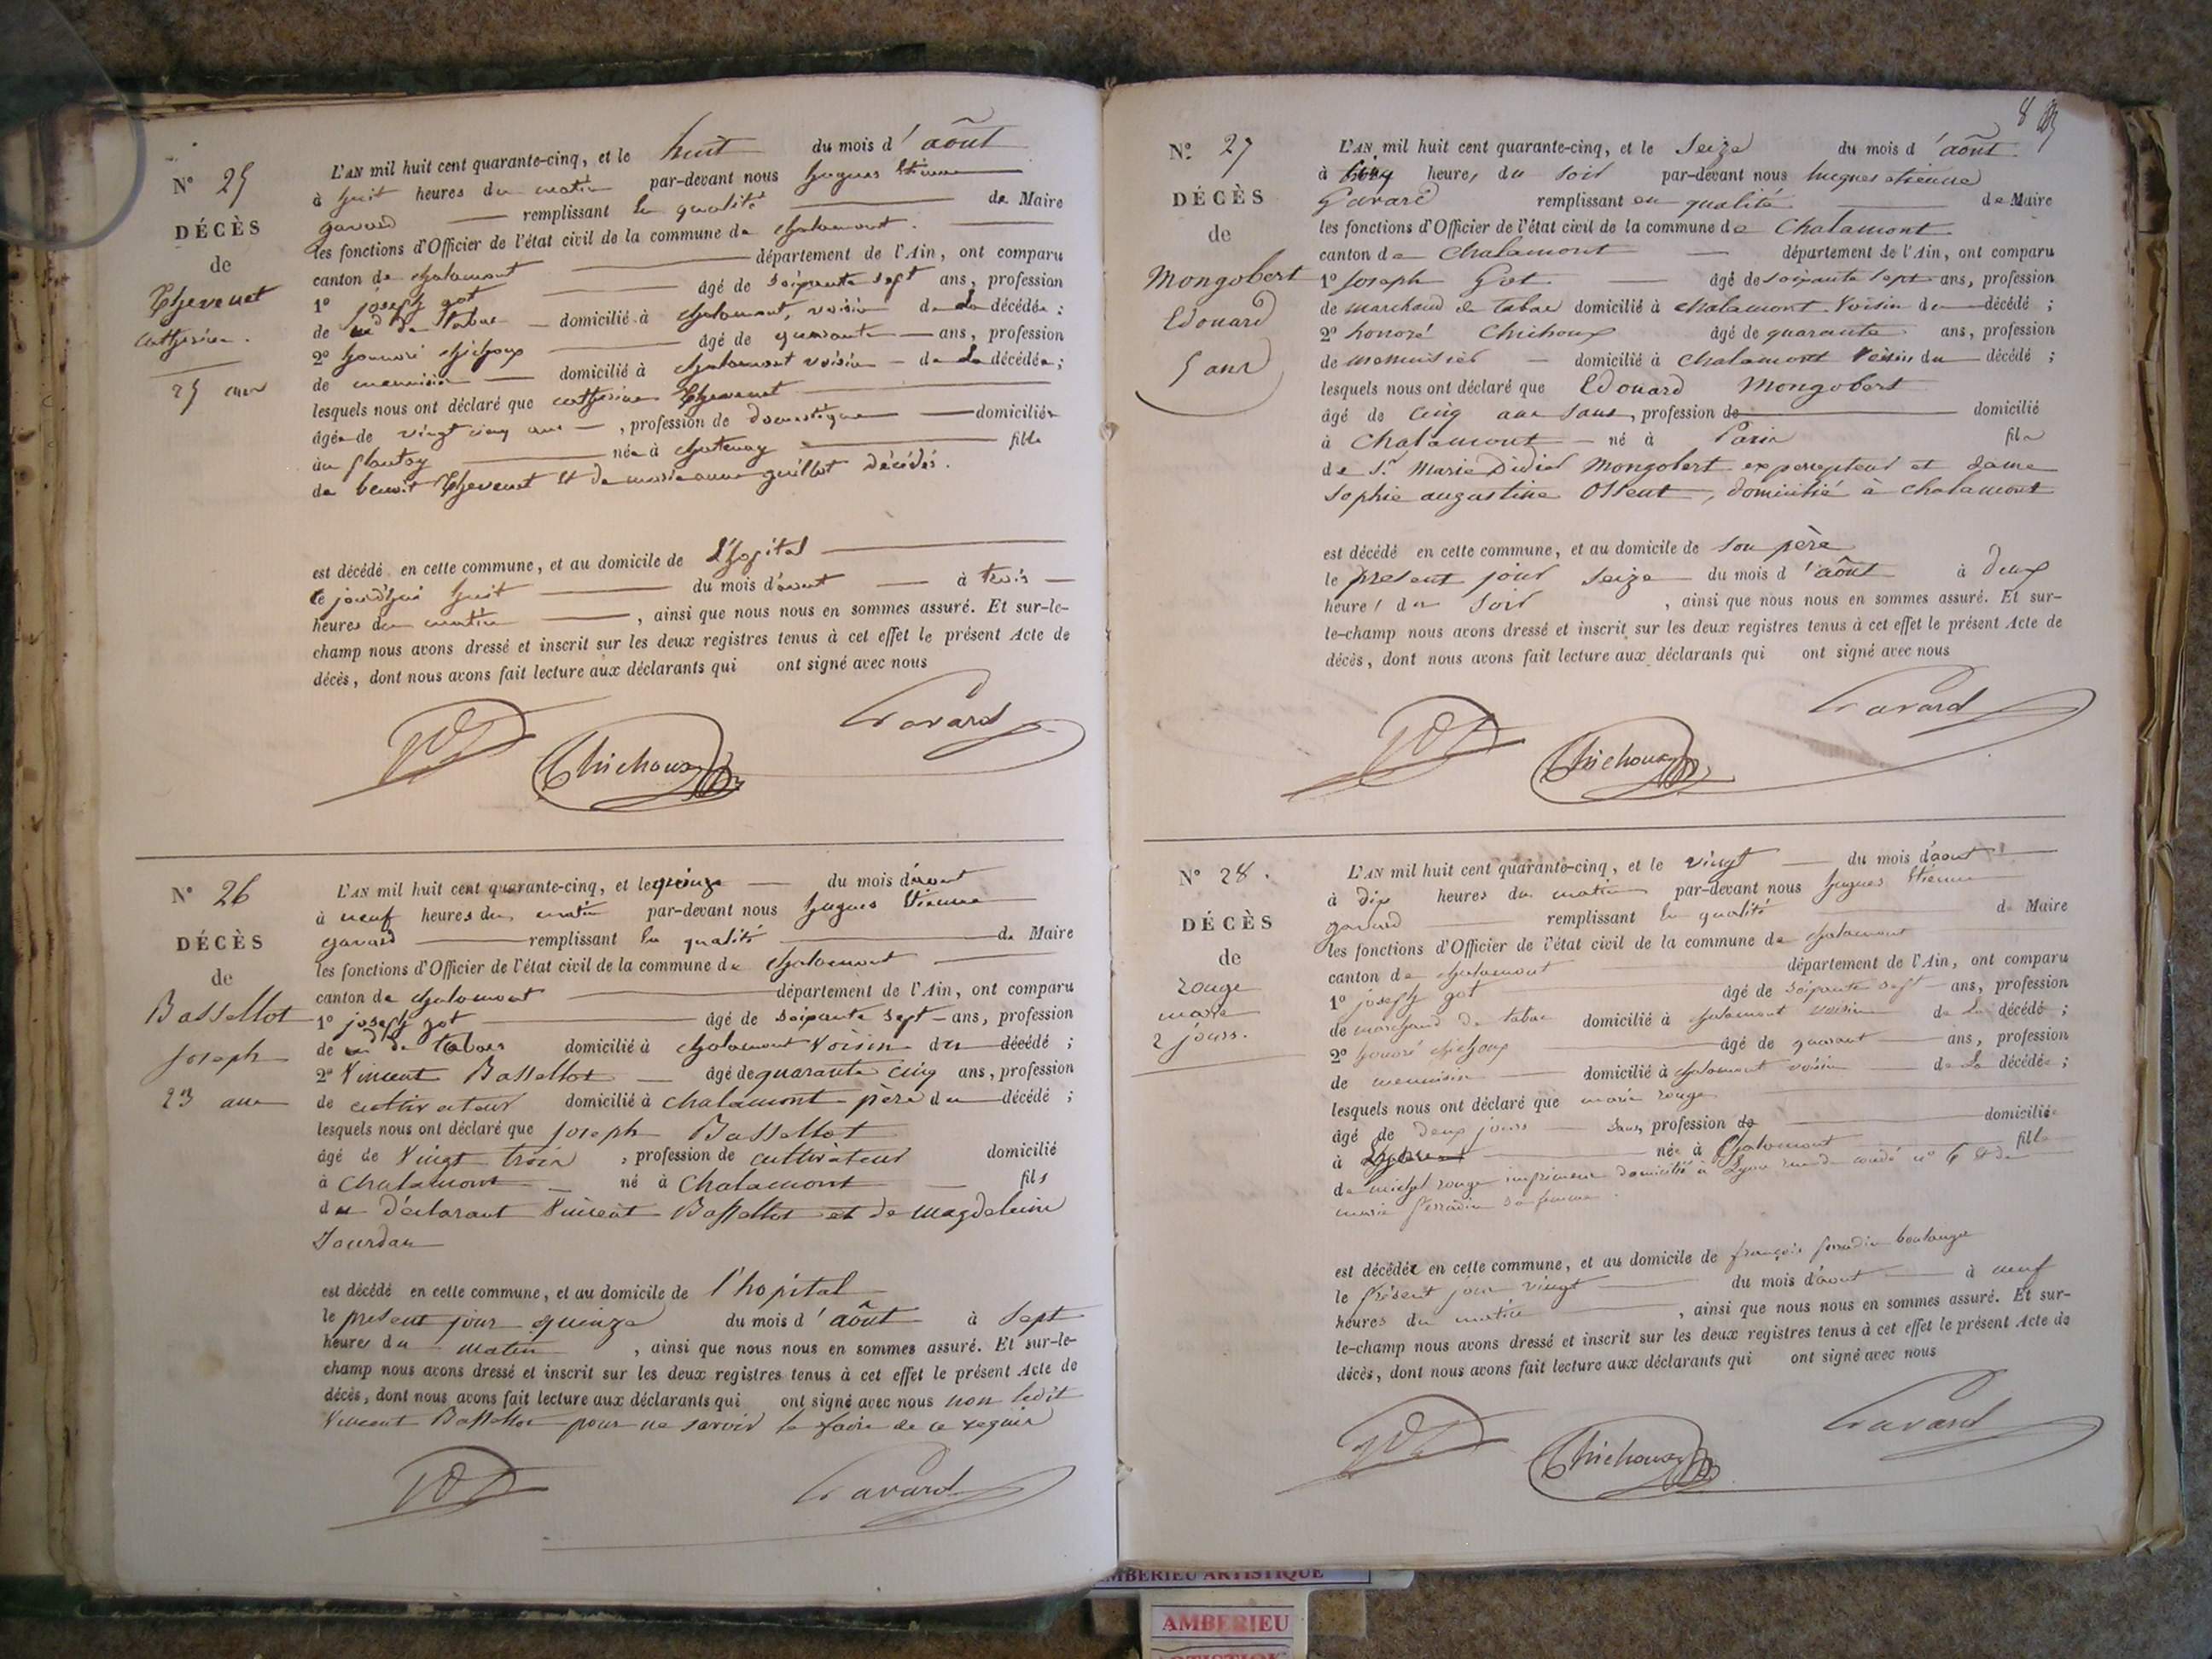 N° 25
DÉCÈS
de
Thevenet
Catherine.
25 ans
L'AN mil huit cent quarante-cinq, et le huit du mois d'août
à huit heures du matin par-devant nous hugues Etienne
gavard remplissant en qualité de Maire
les fonctions d'Officier de l'état civil de la commune de chalamont.
canton de chalamont département de l'Ain, ont comparu
1° joseph got âgé de soixante sept ans, profession
de md de tabac domicilié à chalamont, voisin de La décédée;
2° honnoré chichoux âgé de quarante ans, profession
de menuisier domicilié à chalamont voisin de La décédée;
lesquels nous ont déclaré que catherine thevenet
âgée de vingt cinq ans, profession de domestique domiciliée
au plantay née à chatenay fille
de benoit thevenet et de marie anne guillot décédés.
est décédé en cette commune, et au domicile de L'hopital
le jourdhui huit du mois d'aout à trois
heures du matin, ainsi que nous nous en sommes assuré. Et sur-le-
champ nous avons dressé et inscrit sur les deux registres tenus à cet effet le présent Acte de
décès, dont nous avons fait lecture aux déclarants qui ont signé avec nous
Chichoux Gavard
N° 26
DÉCÈS
de
Bassettot
Joseph
23 ans
L'AN mil huit cent quarante-cinq, et le quinze du mois d'aout
à neuf heures du matin par-devant nous hugues Etienne
gavard remplissant en qualité de Maire
les fonctions d'Officier de l'état civil de la commune de chalamont
canton de chalamont département de l'Ain, ont comparu
1° joseph got âgé de soixante sept ans, profession
de md de tabac domicilié à chalamont voisin du décédé;
2° Vincent Bassettot âgé de quarante cinq ans, profession
de cultivateur domicilié à chalamont père du décédé;
lesquels nous ont déclaré que joseph Bassettot
âgé de Vingt trois, profession de cultivateur domicilié
à Chalamont né à Chalamont fils
du déclarant Vincent Bassettot et de magdeleine
Jourdan
est décédé en cette commune, et au domicile de l'hopital
le present jour quinze du mois d'août à sept
heures du matin, ainsi que nous nous en sommes assuré. Et sur-le-
champ nous avons dressé et inscrit sur les deux registres tenus à cet effet le présent Acte de
décès, dont nous avons fait lecture aux déclarants qui ont signé avec nous non ledit
Vincent Bassettot pour ne savoir le faire de ce requis
Gavard
8
N° 27
DÉCÈS
de
Mongobert
Edouard
5 ans
L'AN mil huit cent quarante-cinq, et le Seize du mois d'août
à Cinq heures du soir par-devant nous hugues etienne
Gavard remplissant en qualité de Maire
les fonctions d'Officier de l'état civil de la commune de Chalamont
canton de Chalamont département de l'Ain, ont comparu
1° Joseph Got âgé de soixante sept ans, profession
de marchand de tabac domicilié à chalamont Voisin du décédé;
2° honoré Chichoux âgé de quarante ans, profession
de menuisier domicilié à Chalamont Voisin du décédé;
lesquels nous ont déclaré que Edouard Mongobert
âgé de cinq ans sans, profession de domicilié
à Chalamont né à Paris fils
de Sr. Marie Didier Mongobert expercepteur et dame
Sophie augustine Ossent, domicilié à chalamont
est décédé en cette commune, et au domicile de son père
le present jour seize du mois d'août à deux
heures du soir, ainsi que nous nous en sommes assuré. Et sur-
le-champ nous avons dressé et inscrit sur les deux registres tenus à cet effet le présent Acte de
décès, dont nous avons fait lecture aux déclarants qui ont signé avec nous
Chichoux Gavard
N° 28.
DÉCÈS
de
rouge
marie
2 jours.
L'AN mil huit cent quarante-cinq, et le vingt du mois d'aout
à dix heures du matin par-devant nous hugues Etienne
gavard remplissant en qualité de Maire
les fonctions d'Officier de l'état civil de la commune de chalamont
canton de chalamont département de l'Ain, ont comparu
1° joseph got âgé de soixante sept ans, profession
de marchand de tabac domicilié à chalamont voisin de La décédé;
2° honoré chichoux âgé de quarant ans, profession
de menuisier domicilié à chalamont voisin de La décédée;
lesquels nous ont déclaré que marie rouge
âgé de deux jours sans profession de domiciliée
à née à Chalamont fille
de michel rouge imprimeur domicilié à Lyon rue de condé n° 6 et de
marie ferradin sa femme.
est décédée en cette commune, et au domicile de françois ferradin boulanger
le présent jour vingt du mois d'aout à neuf
heures du matin, ainsi que nous nous en sommes assuré. Et sur-
le-champ nous avons dressé et inscrit sur les deux registres tenus à cet effet le présent Acte de
décès, dont nous avons fait lecture aux déclarants qui ont signé avec nous
Chichoux Gavard
AMBERIEU ARTISTIQUE
AMBERIEU
ARTISTIQUE